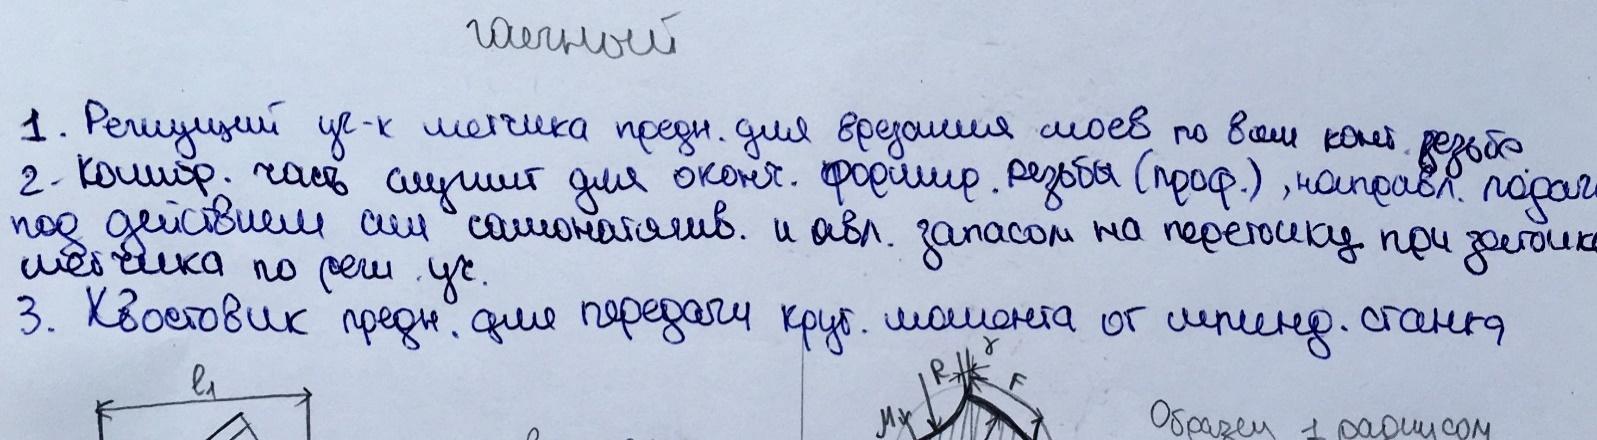 гаечный
1. Режущий уч-к метчика предн. для врезания слоев по всем конт. резьбе
2. Калибр. часть служит для оконч. формир. резьбы (проф.), направл. подачи
под действием сил самозатягив. и явл. запасом на переточку при заточке
метчика по реж. уч.
3. Хвостовик предн. для передачи крут. момента от шпинд. станка
l1
R γ F
Mx
Образец 1 радиусом